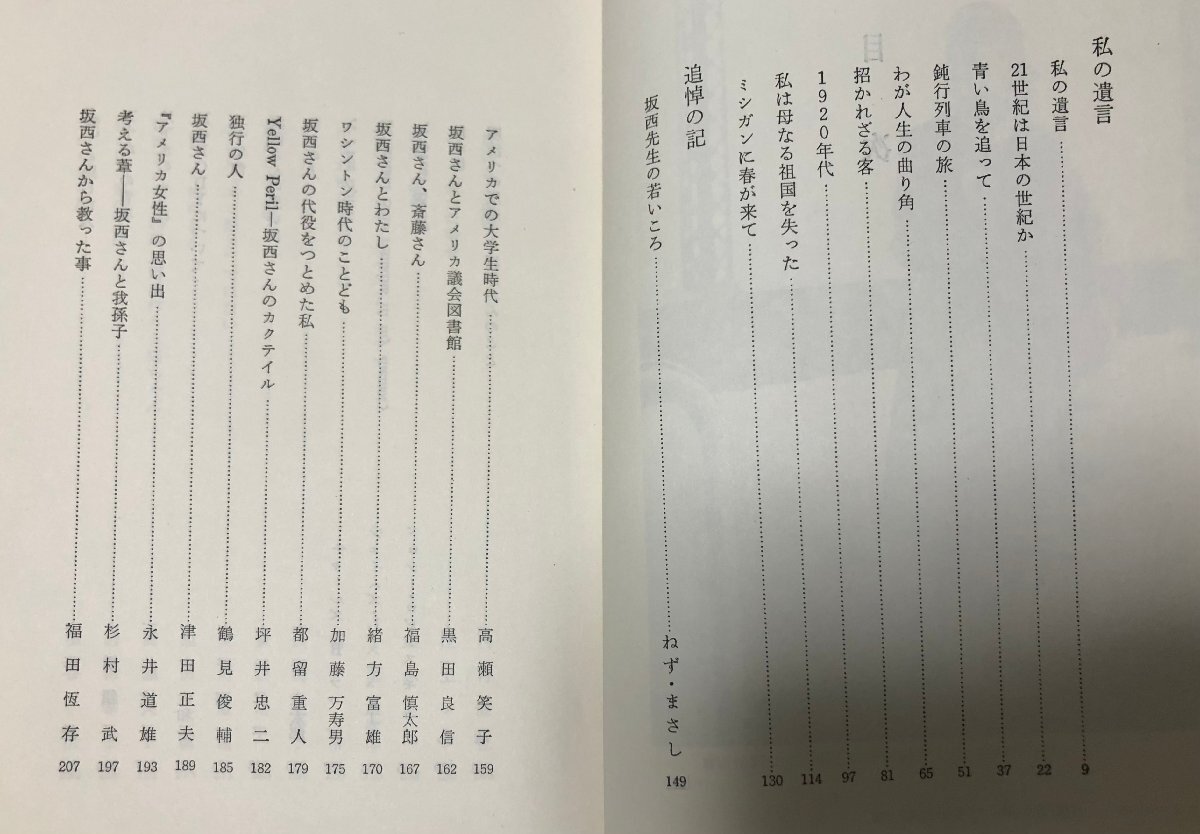 私の遺言
私の遺言……9
21世紀は日本の世紀か……22
青い鳥を追って……37
鈍行列車の旅……51
わが人生の曲り角……65
招かれざる客……81
1920年代……97
私は母なる祖国を失った……114
ミシガンに春が来て……130
追悼の記
坂西先生の若いころ……ねず・まさし 149
アメリカでの大学生時代……高瀬笑子 159
坂西さんとアメリカ議会図書館……黒田良信 162
坂西さん、斎藤さん……福島慎太郎 167
坂西さんとわたし……緒方富雄 170
ワシントン時代のことども……加藤万寿男 175
坂西さんの代役をつとめた私……都留重人 179
Yellow Peril―坂西さんのカクテイル……坪井忠二 182
独行の人……鶴見俊輔 185
坂西さん……津田正夫 189
『アメリカ女性』の思い出……永井道雄 193
考える葦――坂西さんと我孫子……杉村武 197
坂西さんから教った事……福田恆存 207